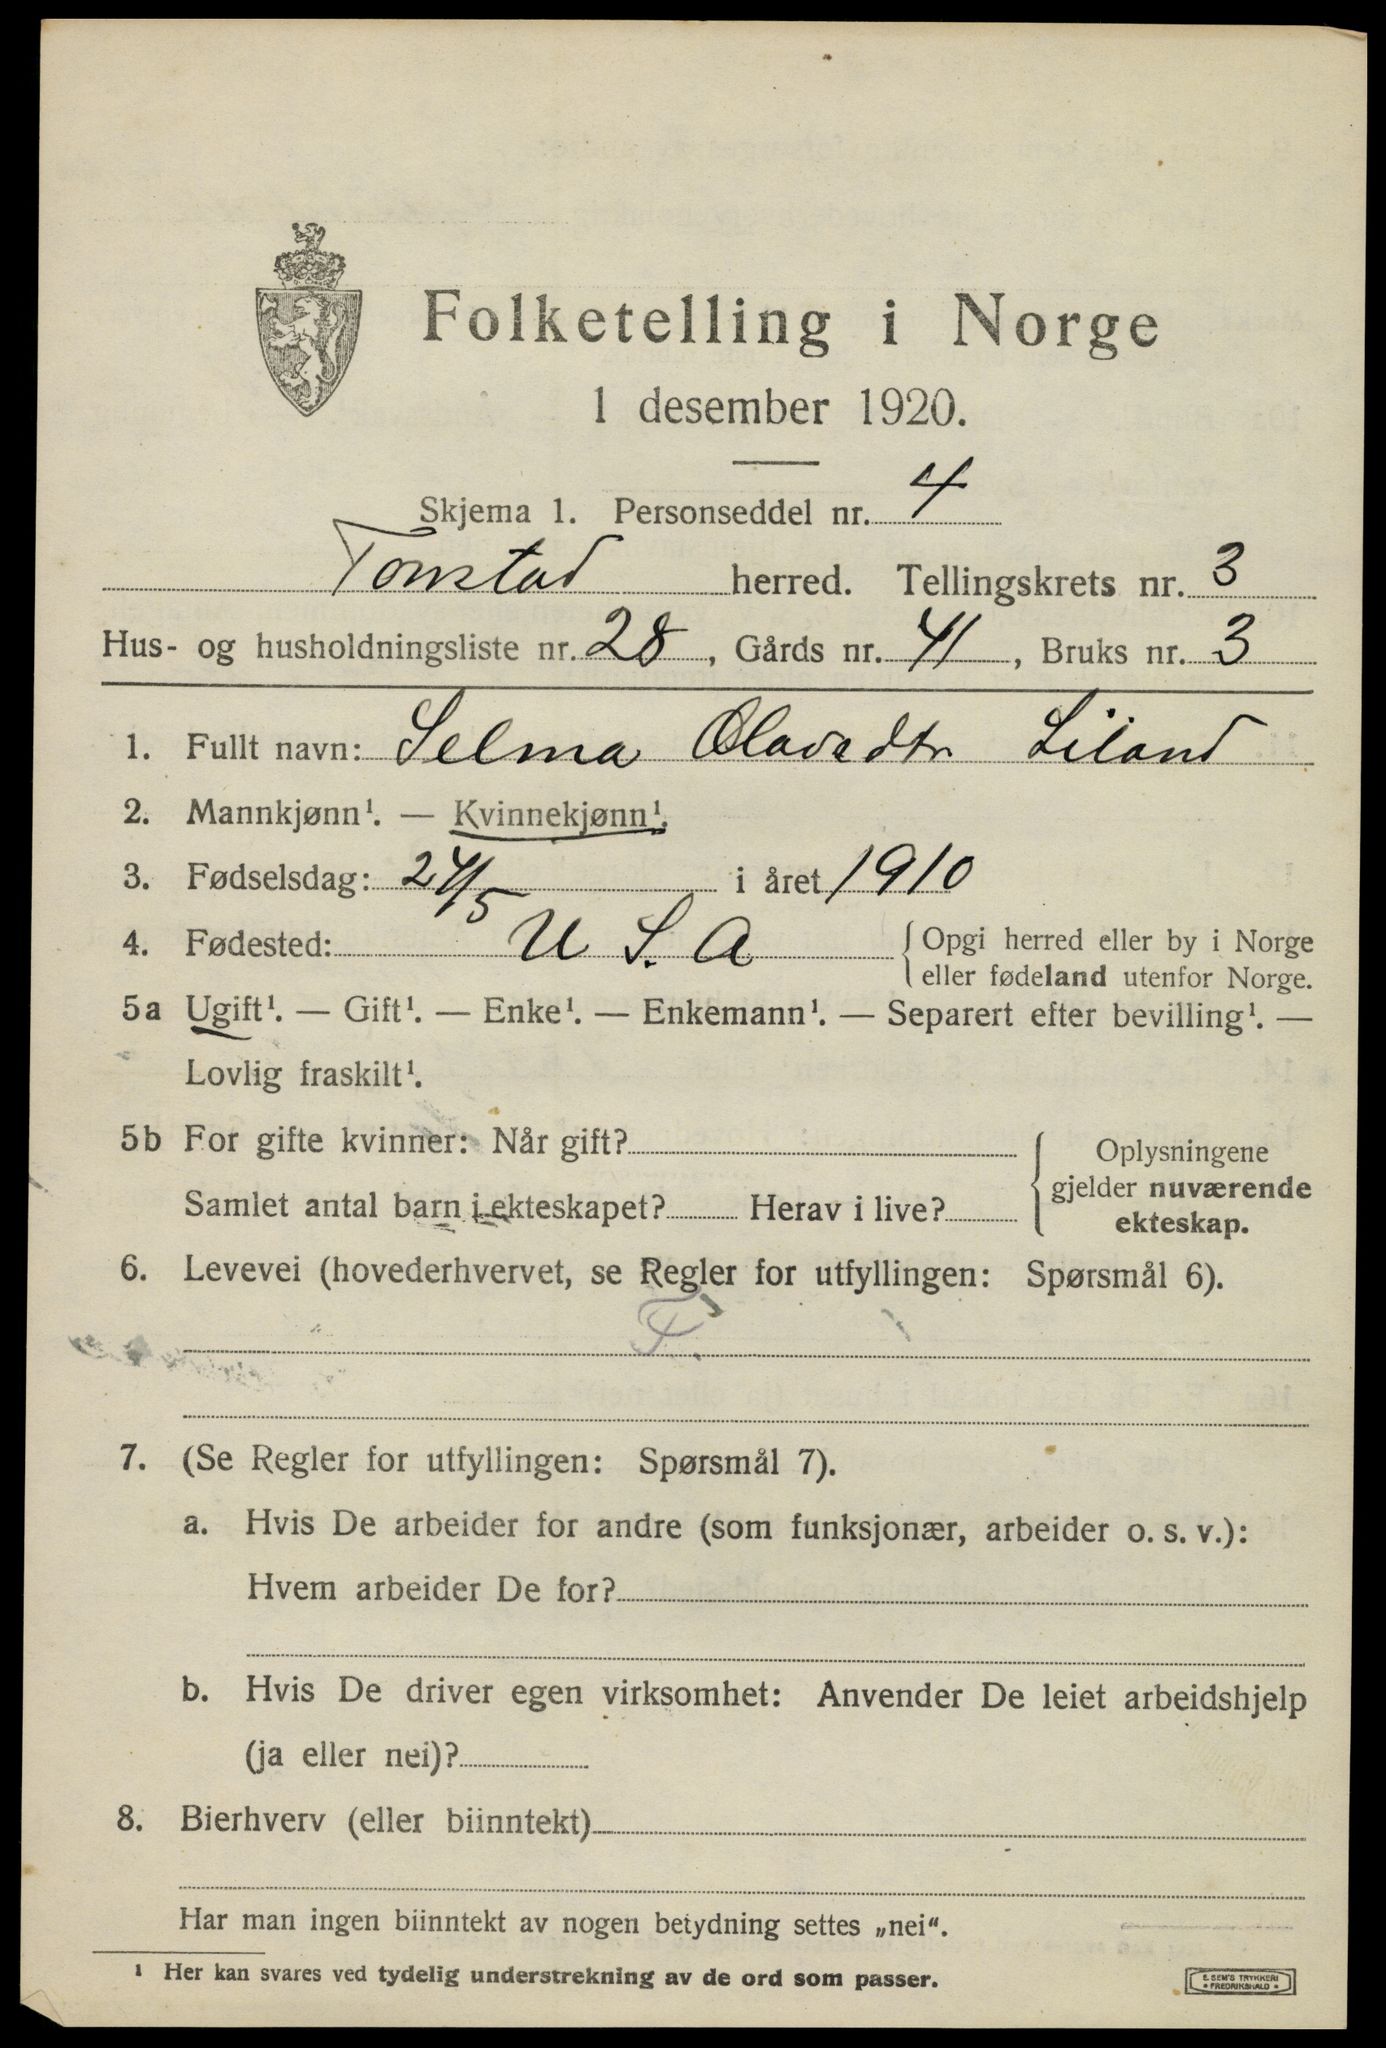 Folketelling i Norge
1 desember 1920.
Skjema 1. Personseddel nr. 4
Tonstad herred. Tellingskrets nr. 3
Hus- og husholdningsliste nr. 28, Gårds nr. 41, Bruks nr. 3
1. Fullt navn: Selma Olavsdtr. Liland
2. Mannkjønn¹. — Kvinnekjønn¹.
3. Fødselsdag: 24/5 i året 1910
4. Fødested: U S. A { Opgi herred eller by i Norge
eller fødeland utenfor Norge.
5a Ugift¹. — Gift¹. — Enke¹. — Enkemann¹. — Separert efter bevilling¹. —
Lovlig fraskilt¹.
5b For gifte kvinner: Når gift? { Oplysningene
gjelder nuværende
Samlet antal barn i ekteskapet? Herav i live? ekteskap.
6. Levevei (hovederhvervet, se Regler for utfyllingen: Spørsmål 6).
F.
7. (Se Regler for utfyllingen: Spørsmål 7).
a. Hvis De arbeider for andre (som funksjonær, arbeider o. s. v.):
Hvem arbeider De for?
b. Hvis De driver egen virksomhet: Anvender De leiet arbeidshjelp
(ja eller nei)?
8. Bierhverv (eller biinntekt)
Har man ingen biinntekt av nogen betydning settes „nei“.
¹ Her kan svares ved tydelig understrekning av de ord som passer.
E. SEM'S TRYKKERI
• FREDRIKSHALD •